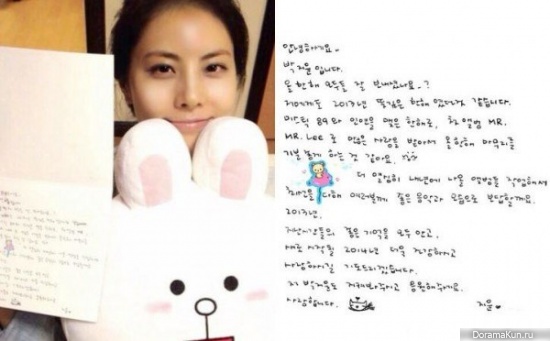 안녕하세요。
박지윤 입니다.
올 한해 모두들 잘 보내셨나요.?
저에게도 2013년 뜻깊은 한해 였던거 같습니다.
미스틱 89와 인연을 맺은 한해로, 첫 앨범 MR.
MR. LEE 로 많은 사랑을 받아서 올 한해 마무리를
기분 좋게 하는 것 같아요.
더 열심히 내년에 나올 앨범들 작업해서
최선을 다해 여러분께 좋은 음악과 모습으로 보답할께요.
2013년,
지난 시간들의 좋은 기억을 모두 안고,
새로 시작될 2014년 더욱 건강하시고
사랑하시길 기도드리겠습니다.
저 박지윤도 지켜봐주시고 응원해주세요.
사랑합니다.
지윤
DoramaKun.ru